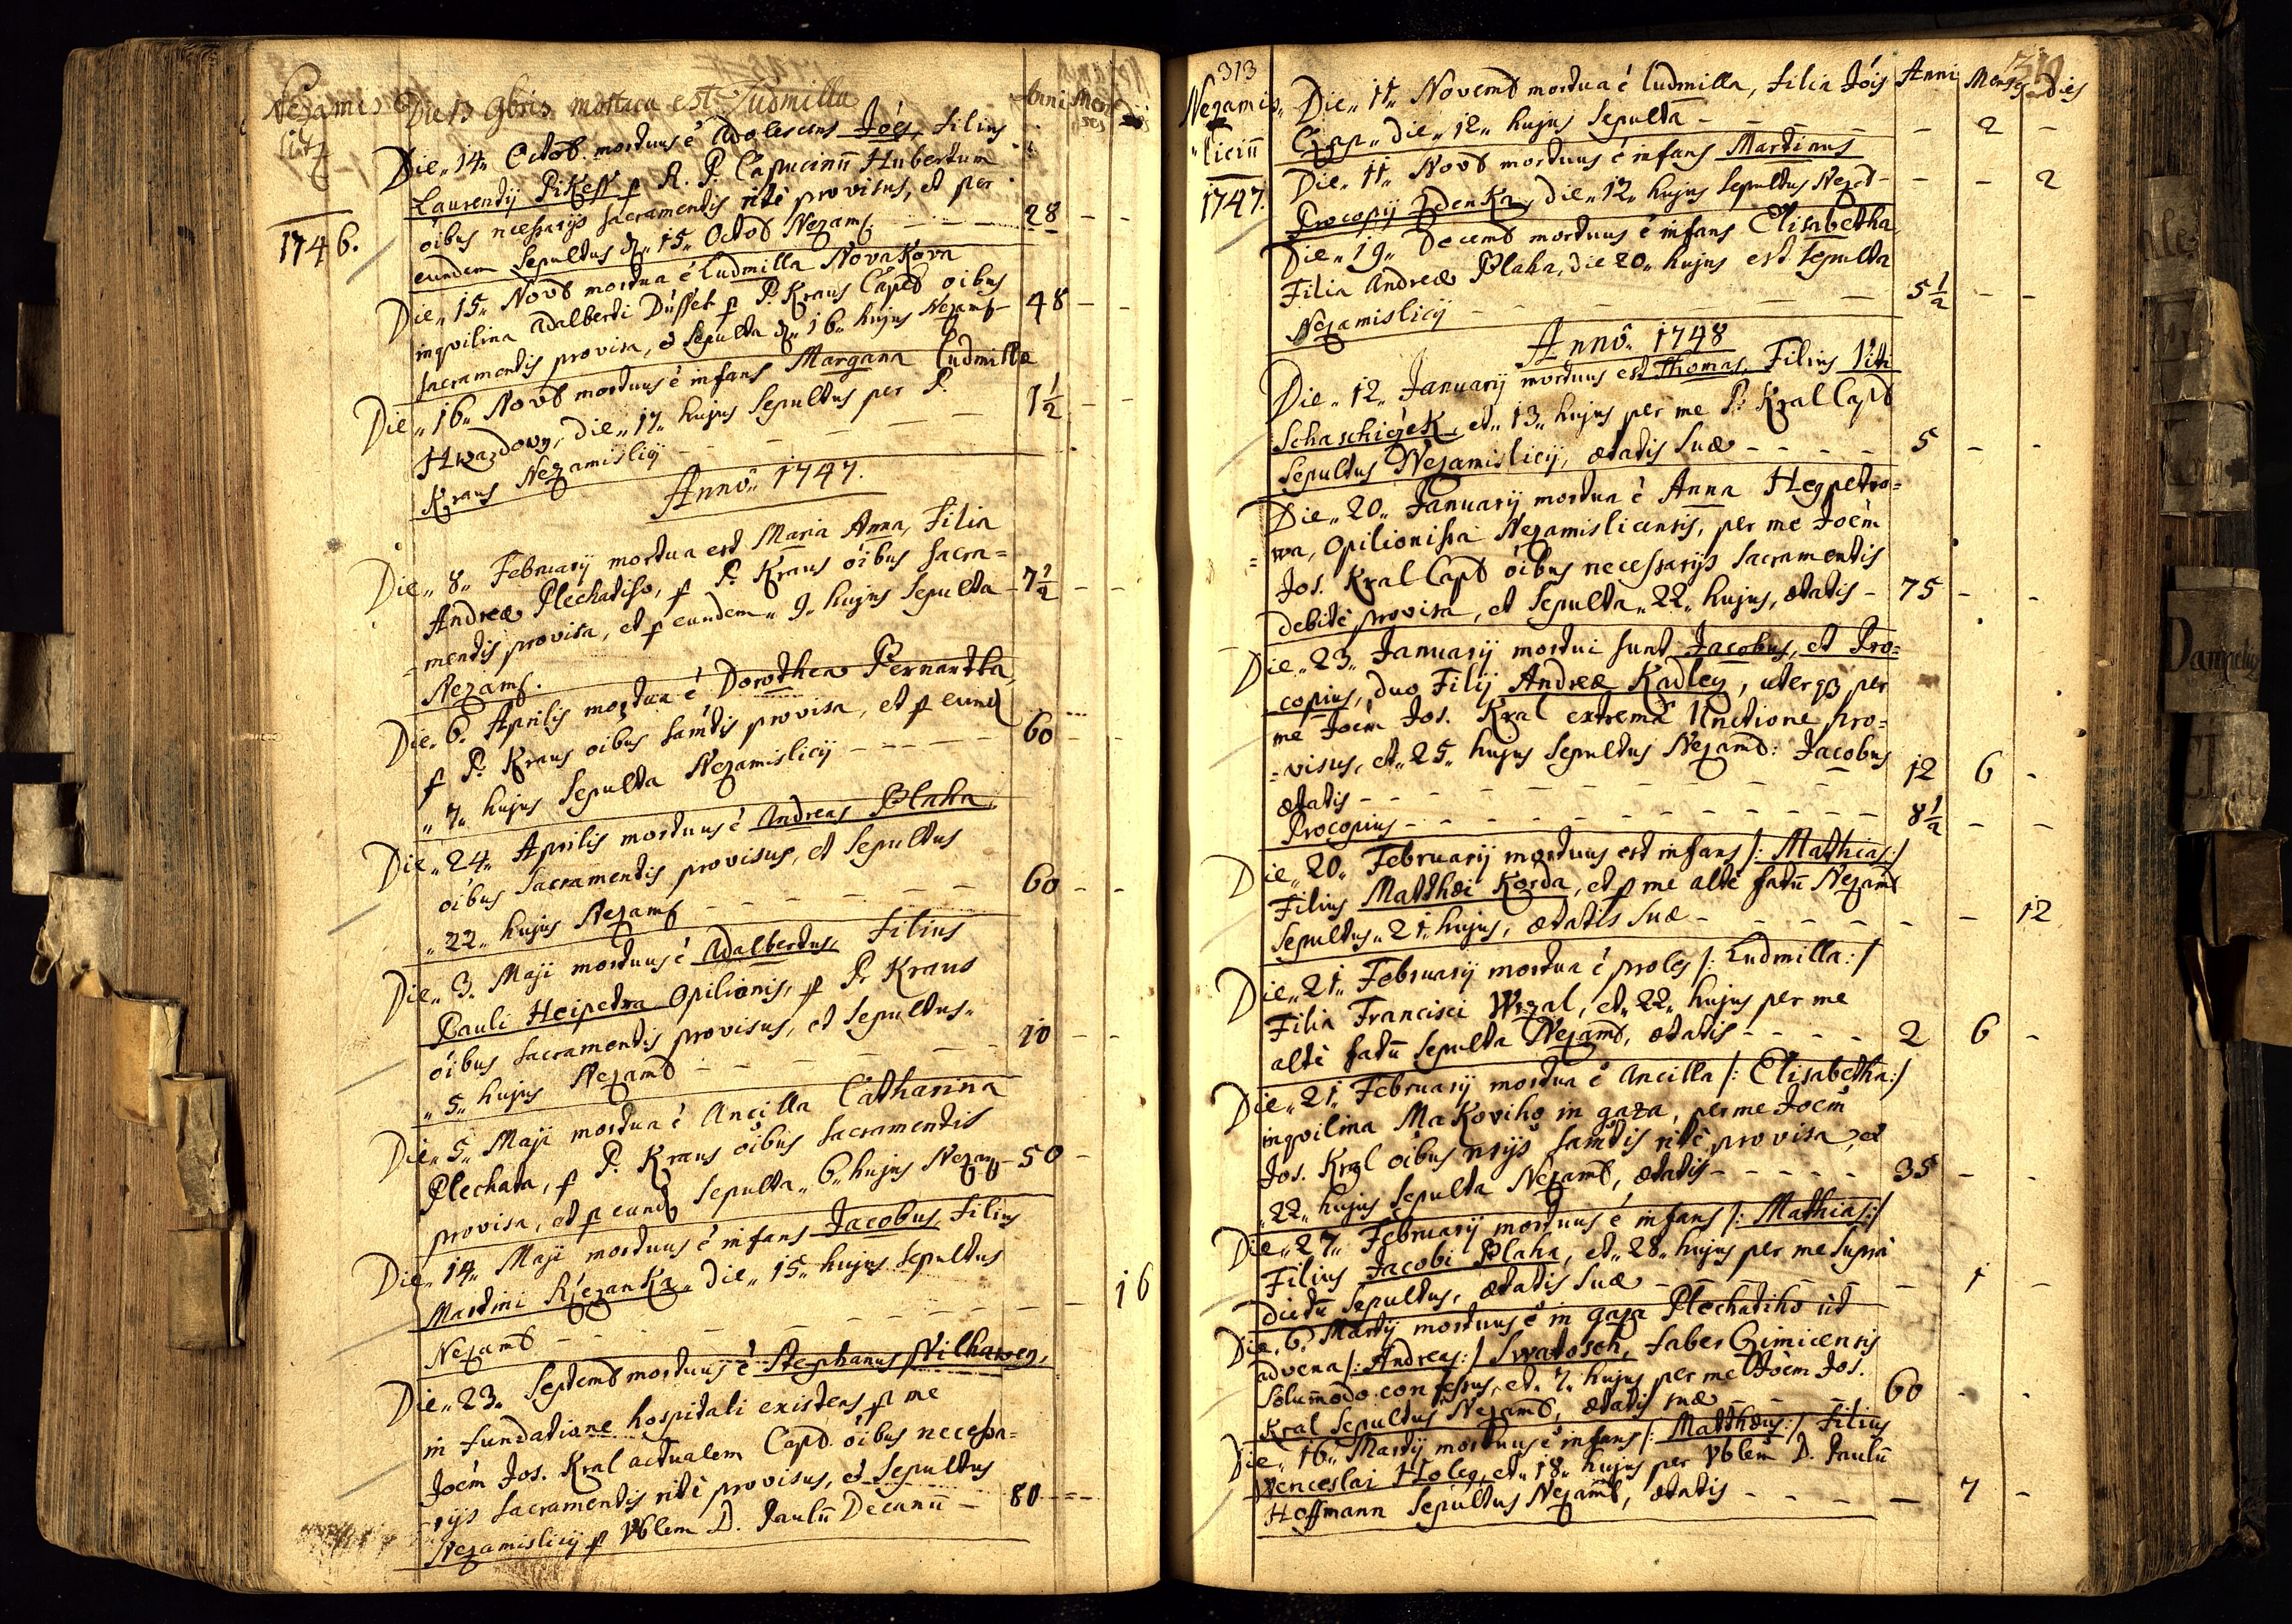 Nezamis
litz
Die 13 9bris mortua est Ludmilla
Anni Men
ses
Die 14 Octob. mortuus é Adolescens Joés, Filius
Laurentij Pikess p R. P. Capucinū Hubertum
óibus nechsarijs Sacramentis ritè provisus, et per
eundem Sepultus d. 15 Octob Nezams. 28 - -
1746.
Die 15 Novb mortua é Ludmilla Novakova
inqvilina Adalberti Dússek p P. Kraus Capd oibus
Sacramentis provisa, é Sepulta d. 16 hujus Nezams - 48 - -
Die 16 Novb mortuus é infans Margana Ludmillæ
Hwazdovy, die 17 hujus Sepultus per P.
Kraus Nezamislicij - - - 1½ - -
Annô 1747.
Die 8 February mortua est Maria Anna, Filia
Andreæ Plechatiho, p P. Kraus óibus Sacra=
=mentis provisa, et p eundem 9 hujus Sepulta - 7½ - -
Nezams.
Die 6. Aprilis mortua é Dorothea Bernartka,
p P. Kraus oibus Samtis provisa, et p eund
7 hujus Sepulta Nezamislicij - - - - 60 - -
Die 24 Aprilis mortuus é Andreas Blaha,
óibus Sacramentis provisus, et Sepultus
22 hujus Nezams - - - - 60 - -
Die 3. Maji mortuus é Adalbertus, Filius
Pauli Heipetra Opilionis, p P. Kraus
óibus Sacramentis provisus, et Sepultus
5 hujus Nezamb - - - - 10 - -
Die 5 Maji mortua é Ancilla Catharina
Plechata, p P. Kraus óibus Sacramentis
provisa, et p eund Sepulta 6 hujus Nezam - 50 -
Die 14 Maji mortuus é infans Jacobus, Filius
Martini Rżezanka, die 15 hujus Sepultus
Nezamb - - - - - 16
Die 23. Septemb mortuus é Stephanus Nilhawey,
in fundatione hospitali existens p me
Joém Jos. Kral actualem Capd. óibus necessa=
rijs Sacramentis ritè provisus, et Sepultus
Nezamislicij p Vblem D. Paulū Decanū - 80 - -
313
319
Nezamis
licin̄
1747.
Anni Menses Dies
Die 11 Novemb mortua é Ludmilla, Filia Jóis
die 12 hujus Sepulta - - - - 2 -
Die 11 Novb mortuus é infans Martinus
Procopij Zdenka, die 12 hujus Sepultus Nezd - - - 2
Die 19 Decemb mortuus é infans Elisabetha,
Filia Andreæ Blaha, die 20 hujus est Sepulta
Nezamislicij - - - - 5½ - -
Annô 1748
Die 12 January mortuus est Thomas, Filius Viti
Schaschiczek, et 13 hujus per me P. Kral Capd
Sepultus Nezamislicij, ætatis Suæ - - - - 5 - -
Die 20 January mortua é Anna Hegpetro=
=wa, Opilionissa Nezamislicensis, per me Joém
Jos. Kral Capd óibus necessarijs Sacramentis
debitè provisa, et Sepulta 22 hujus, ætatis - 75 - -
Die 23 January mortui sunt Jacobus, et Pro=
copius, duo Filij Andreæ Kadley, uterq; per
me Joém Jos. Kral extremā Unctione pro=
=visus, et 25 hujus Sepultus Nezamb: Jacobus
ætatis - - - - 12 6 -
Procopius - - - - 8½ - -
Die 20 February mortuus est infans /: Mathias :/
Filius Matthæi Korda, et p me altè fatū Nezamb
Sepultus 21 hujus, ætatis Suæ - - - - - - 12
Die 21 February mortua é proles /: Ludmilla :/
Filia Francisci Wrzal, et 22 hujus per me
altè fatū Sepulta Nezamb, ætatis - - - - 2 6 -
Die 21 February mortua é Ancilla /: Elisabetha :/
inqvilina Makoviho in gaza, per me Joém
Jos. Kral óibus nrijs Samtis ritè provisa, et
22 hujus Sepulta Nezamb, ætatis - - - - 35 - -
Die 27 February mortuus é infans /: Mathias :/
Filius Jacobi Blaha, et 28 hujus per me Supra
dictū Sepultus, ætatis Suæ - - - - - 1 -
Die 6 Martij mortuus é in gaza Plechatiho ùt
advena /: Andreas :/ Swatosch, faber Gimicensis
Solum̄odo confessus, et 7 hujus per me Joém Jos.
Kral Sepultus Nezamb, ætatis suæ - - - 60 - -
Die 16 Martij mortuus é infans /: Matthæus :/ Filius
Wenceslai Holey, et 18 hujus per Vblem D. Paulū
Hoffmann Sepultus Nezamb, ætatis - - - - 7 -